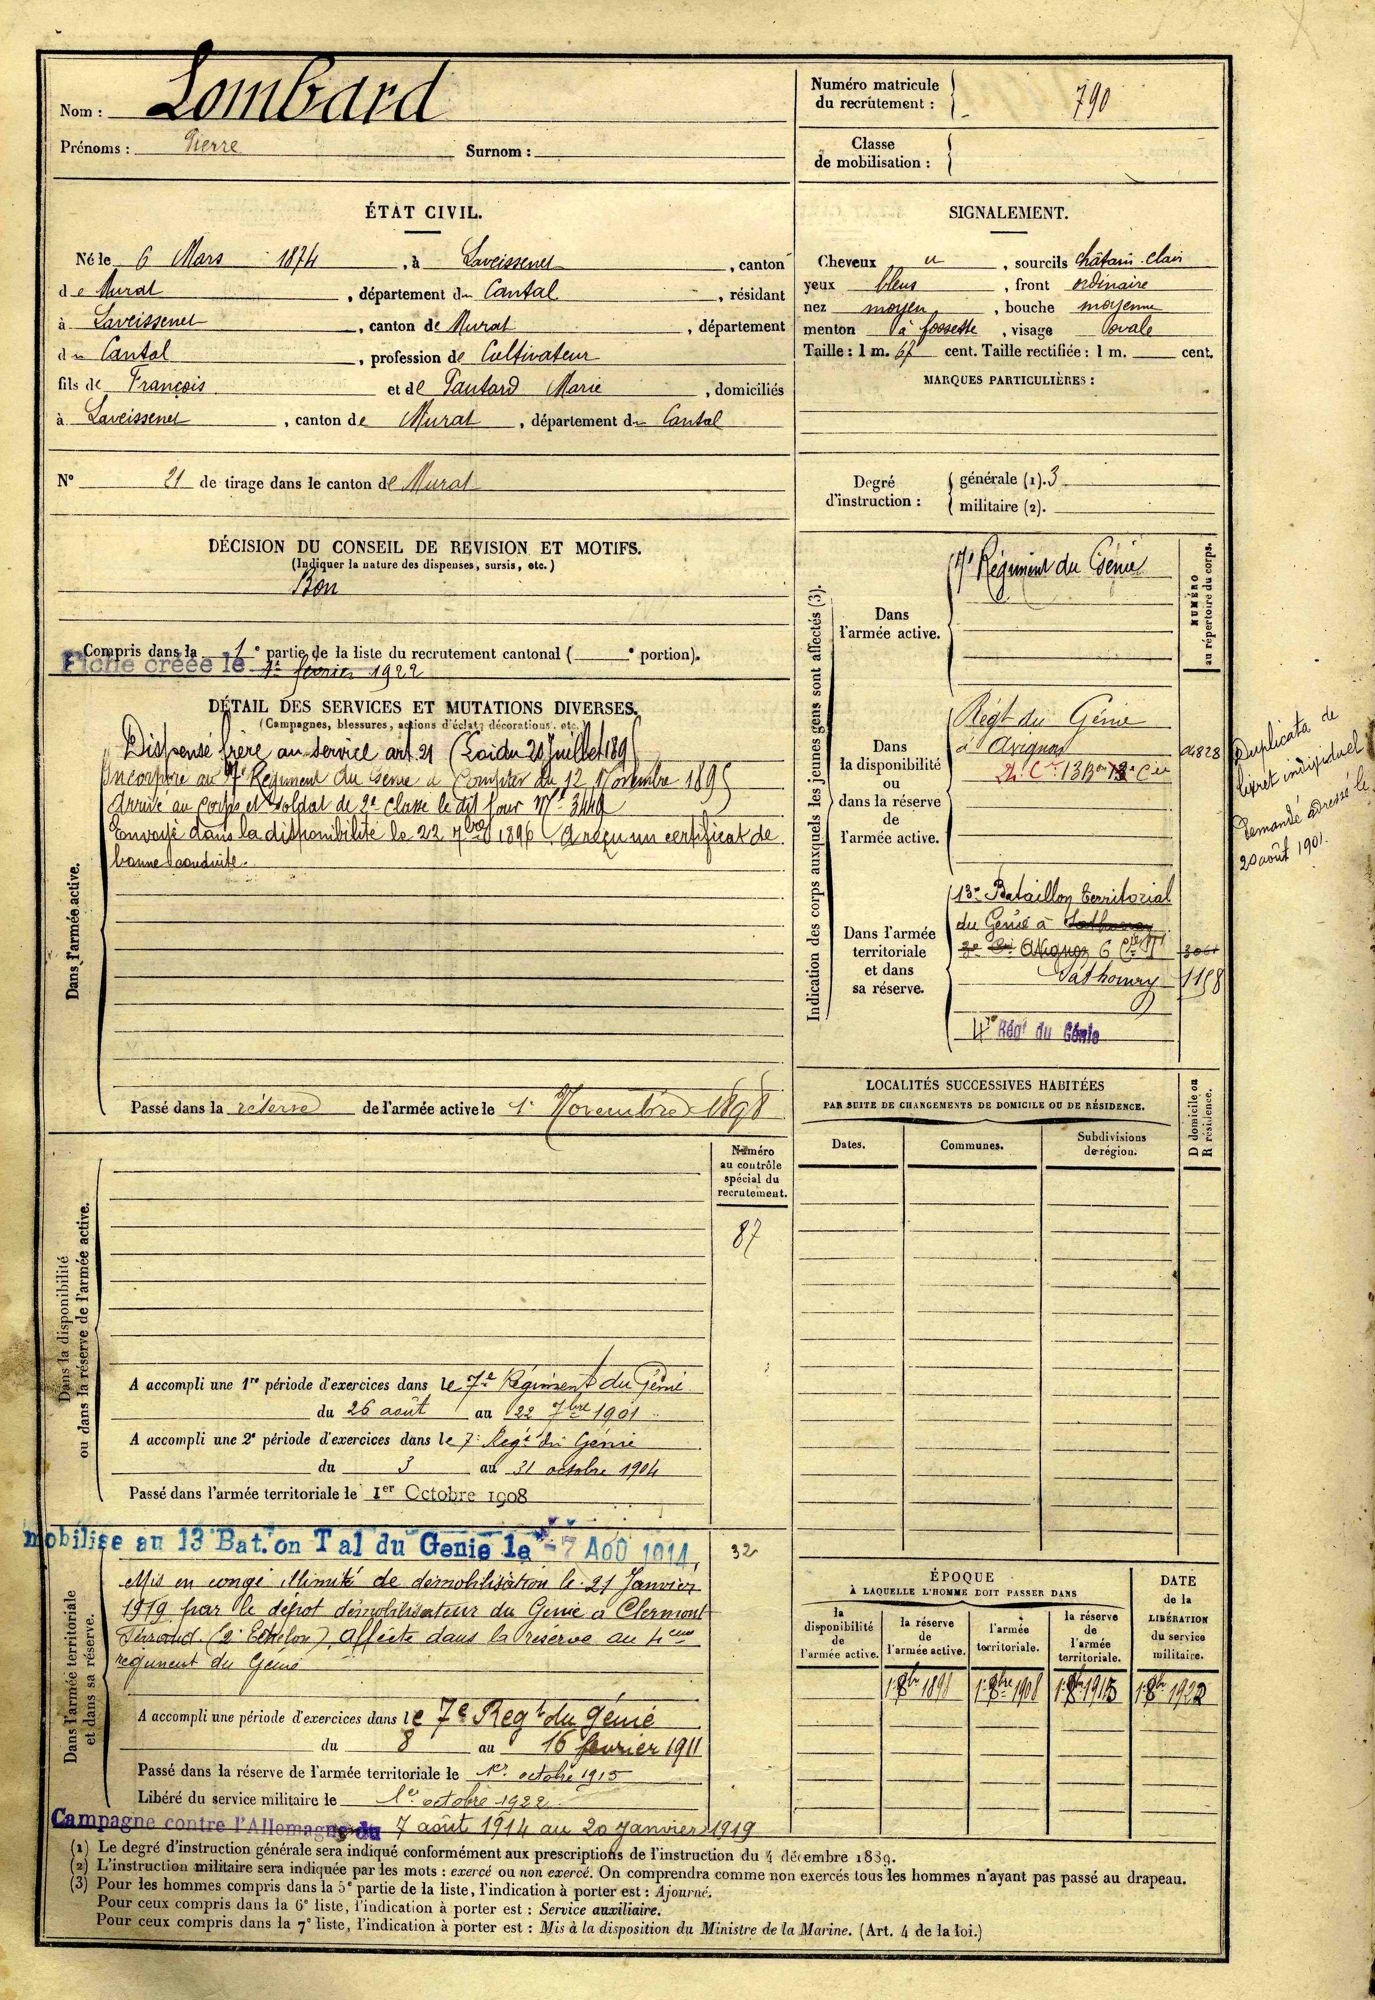 Nom : Lombard
Prénoms : Pierre Surnom :
Numéro matricule du recrutement : 790
Classe de mobilisation :
ÉTAT CIVIL.
Né le 6 Mars 1874, à Laveissenet, canton
de Murat, département du Cantal, résidant
à Laveissenet, canton de Murat, département
du Cantal, profession de Cultivateur
fils de François et de Pautard Marie, domiciliés
à Laveissenet, canton de Murat, département du Cantal
N° 21 de tirage dans le canton de Murat
SIGNALEMENT.
Cheveux u, sourcils châtain clair
yeux bleus, front ordinaire
nez moyen, bouche moyenne
menton à fossette, visage ovale
Taille : 1 m. 67 cent. Taille rectifiée : 1 m. cent.
MARQUES PARTICULIÈRES :
Degré d'instruction :
générale (1). 3
militaire (2).
DÉCISION DU CONSEIL DE REVISION ET MOTIFS.
(Indiquer la nature des dispenses, sursis, etc.)
Bon
Compris dans la 1e partie de la liste du recrutement cantonal ( e portion).
Fiche créée le 1er février 1922
DÉTAIL DES SERVICES ET MUTATIONS DIVERSES.
(Campagnes, blessures, actions d'éclat, décorations, etc.)
Dans l'armée active.
Dispensé frère au service art. 21 (Loi du 20 Juillet 1895
Incorporé au 7e Régiment du Génie à Compter du 12 Novembre 1895
Arrivé au Corps et soldat de 2e Classe le dit jour No 3449
Envoyé dans la disponibilité le 22 7bre 1896. A reçu un certificat de
bonne conduite.
Passé dans la réserve de l'armée active le 1er Novembre 1898
Indication des corps auxquels les jeunes gens sont affectés (3).
NUMÉRO au répertoire du corps.
Dans l'armée active.
7e Régiment du Génie
Dans la disponibilité ou dans la réserve de l'armée active.
Régt du Génie
à Avignon
13 Bon 13e Cie
04828
Dans l'armée territoriale et dans sa réserve.
13e Bataillon territorial
du Génie à Sathonay
Avignon 6
Sathonay 1158
4e Régt du Génie
Duplicata de
livret individuel
Demandé adressé le
20 août 1901.
LOCALITÉS SUCCESSIVES HABITÉES
PAR SUITE DE CHANGEMENTS DE DOMICILE OU DE RÉSIDENCE.
Dates. Communes. Subdivisions de région. D domicile ou R résidence.
Dans la disponibilité ou dans la réserve de l'armée active.
Numéro au contrôle spécial du recrutement.
87
A accompli une 1re période d'exercices dans le 7e Régiment du Génie
du 26 août au 22 7bre 1901
A accompli une 2e période d'exercices dans le 7e Regt du Génie
du 3 au 31 octobre 1904
Passé dans l'armée territoriale le 1er Octobre 1908
mobilise au 13 Bat.on Tal du Genie le 7 AOU 1914,
32
Dans l'armée territoriale et dans sa réserve.
Mis en congé illimité de démobilisation le 21 Janvier
1919 par le dépôt démobilisateur du Genie à Clermont
Ferrand (2e Echelon), affecté dans la réserve au 4eme
regiment du Genie
A accompli une période d'exercices dans le 7e Regt du génie
du 8 au 16 fevrier 1911
Passé dans la réserve de l'armée territoriale le 1er octobre 1915
Libéré du service militaire le 1er octobre 1922
Campagne contre l'Allemagne du 7 août 1914 au 20 Janvier 1919
ÉPOQUE
À LAQUELLE L'HOMME DOIT PASSER DANS
la disponibilité de l'armée active. la réserve de l'armée active. l'armée territoriale. la réserve de l'armée territoriale.
DATE de la LIBÉRATION du service militaire.
1er 8bre 1898 1er 8bre 1908 1er 8bre 1915 1er 8bre 1922
(1) Le degré d'instruction générale sera indiqué conformément aux prescriptions de l'instruction du 4 décembre 1889.
(2) L'instruction militaire sera indiquée par les mots : exercé ou non exercé. On comprendra comme non exercés tous les hommes n'ayant pas passé au drapeau.
(3) Pour les hommes compris dans la 5e partie de la liste, l'indication à porter est : Ajourné.
Pour ceux compris dans la 6e liste, l'indication à porter est : Service auxiliaire.
Pour ceux compris dans la 7e liste, l'indication à porter est : Mis à la disposition du Ministre de la Marine. (Art. 4 de la loi.)